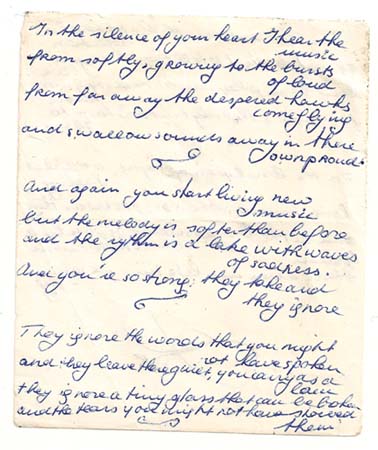 In the silence of your heart I hear the
music
from softly, growing to the bursts
of loud
from far away the despered hawks
come flying
and swallow sounds away in there
own proud.
And again you start living new
music
but the melody is softer than before
and the rythm is a lake with waves
of sadness.
And you're so strong: they take and
they ignore
They ignore the words that you might
not have spoken
and they leave the quiet, you carry as a
they ignore a tiny glass that can be broken
and the tears you might not have showed
them